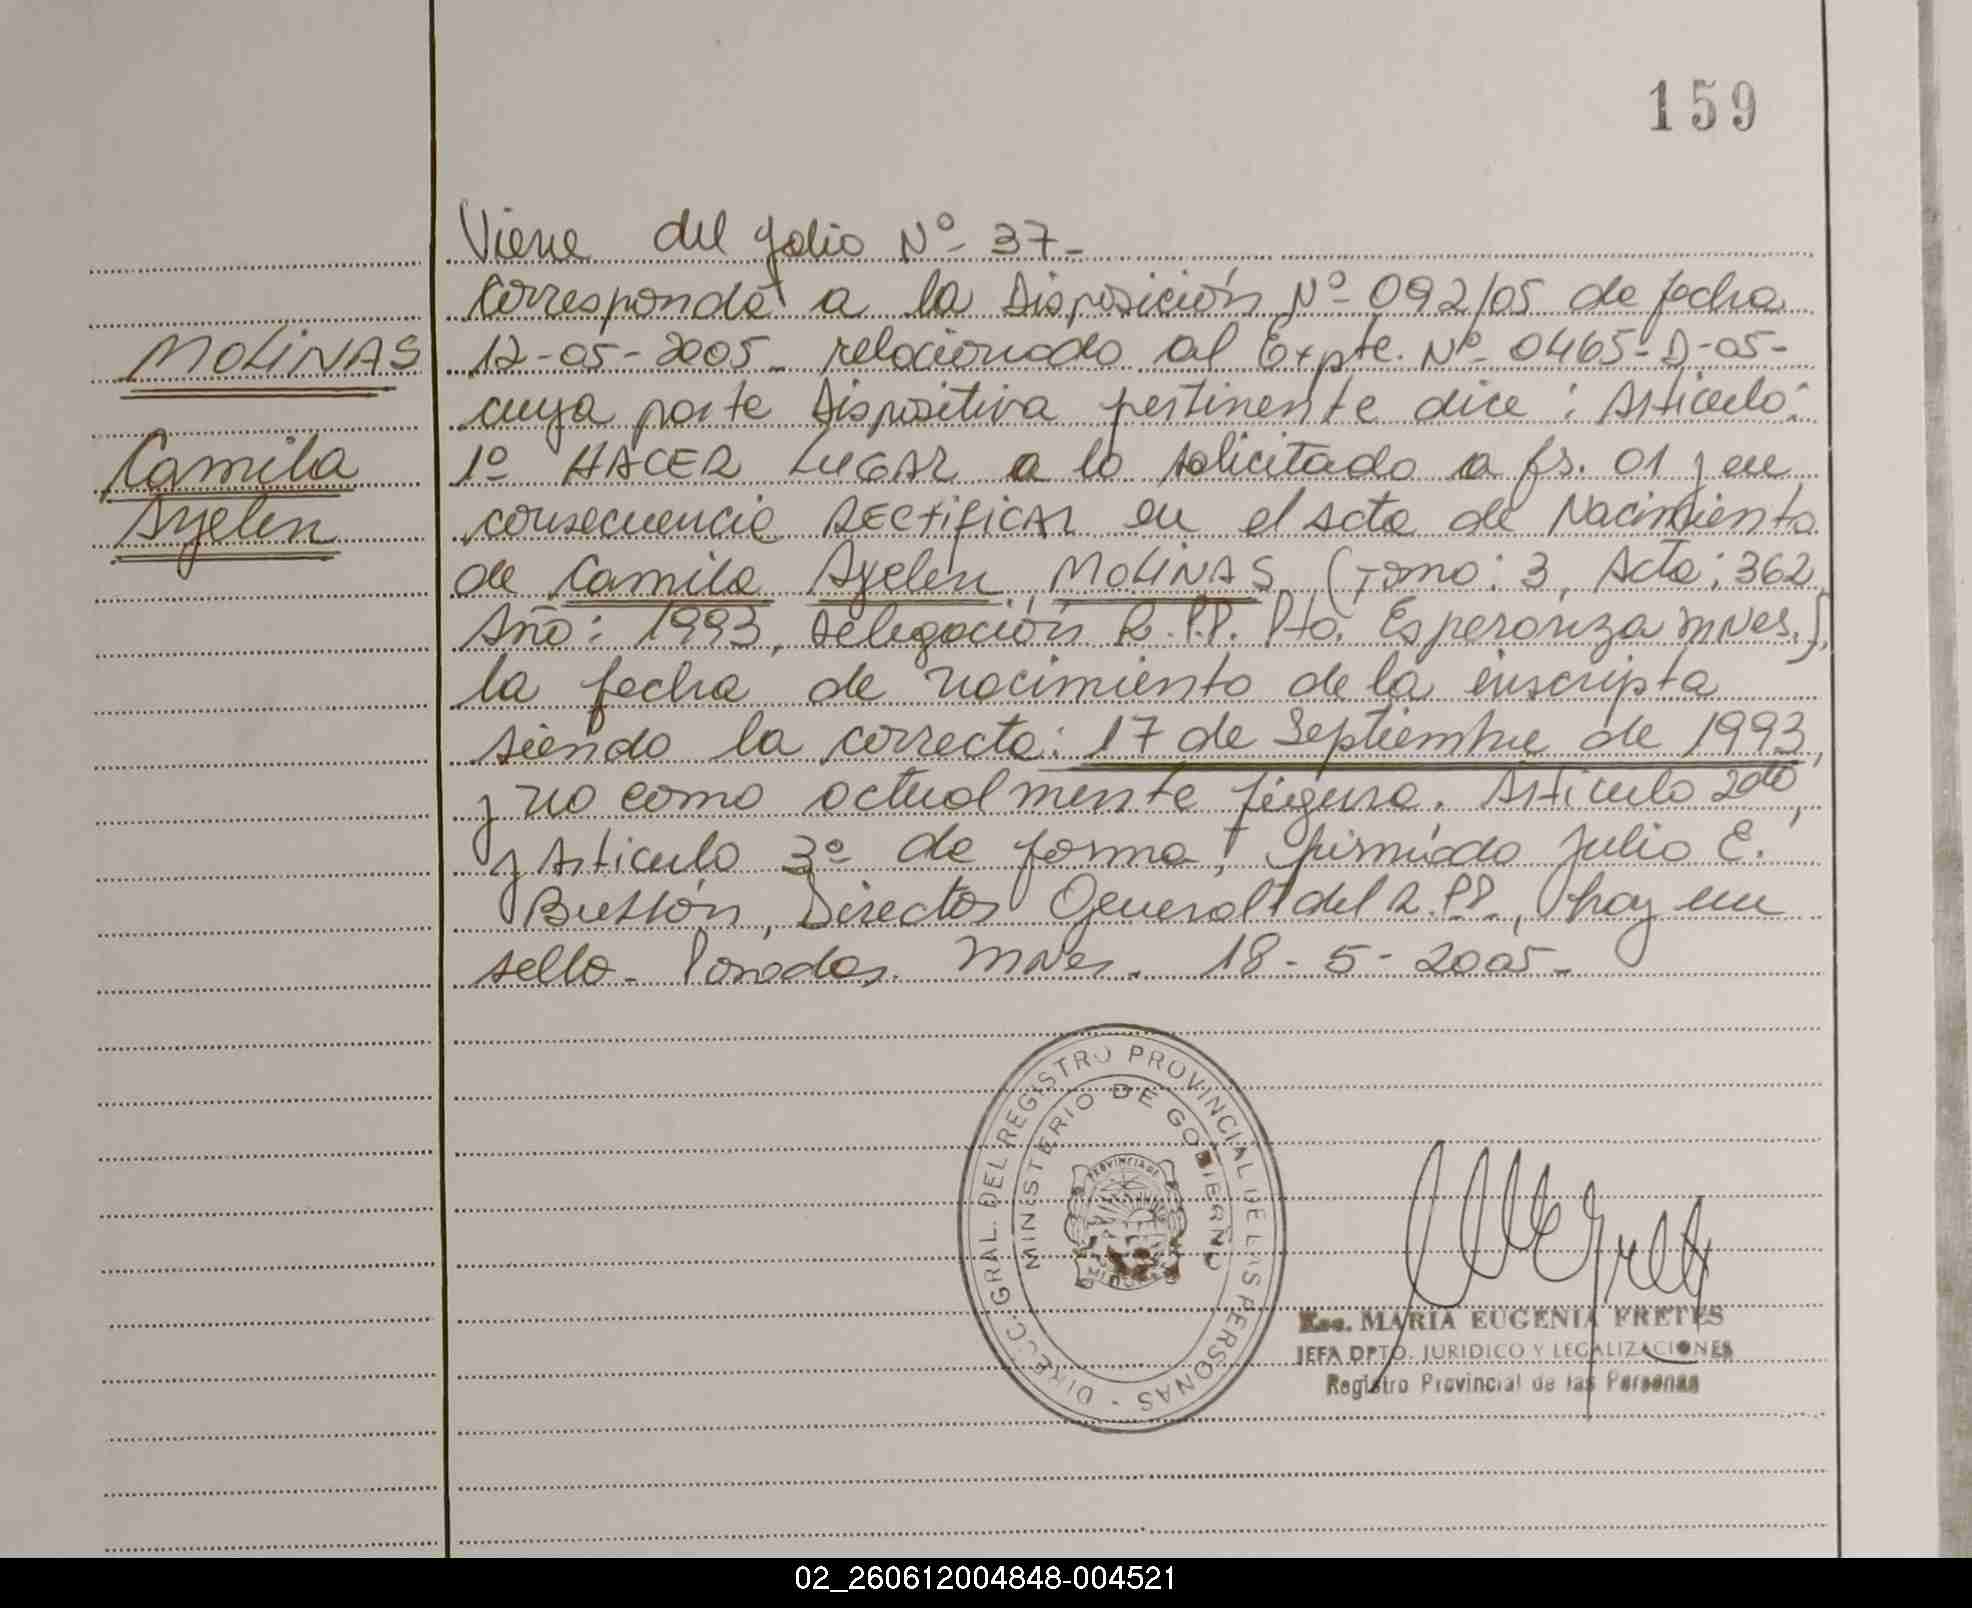 159
Viene del folio Nº 37-
Corresponde a la Disposición Nº 092/05 de fecha
MOLINAS
12-05-2005- relacionado al Expte. Nº 0465-D-05-
cuya parte Dispositiva pertinente dice: Articulo:
Camila
1º HACER LUGAR a lo solicitado a fs. 01 y en
Ayelen
consecuencia RECTIFICAR en el Acta de Nacimiento
de Camila Ayelen MOLINAS (Tomo: 3, Acta: 362
Año: 1993, Delegación R.P.P. Pto. Esperanza Mnes.),
la fecha de nacimiento de la inscripta
siendo la correcta: 17 de Septiembre de 1993,
y no como actualmente figura. Articulo 2do,
y Articulo 3º de forma, firmado Julio E.
Director General del R.P.P., hay un
sello- Posadas. Mnes. 18-5-2005-
DIRECC. GRAL. DEL REGISTRO PROVINCIAL DE LAS PERSONAS -
MINISTERIO DE GOBIERNO
PROVINCIA DE
MISIONES
Esc. MARIA EUGENIA FRETES
JEFA DPTO. JURIDICO Y LEGALIZACIONES
Registro Provincial de las Personas
02_260612004848-004521